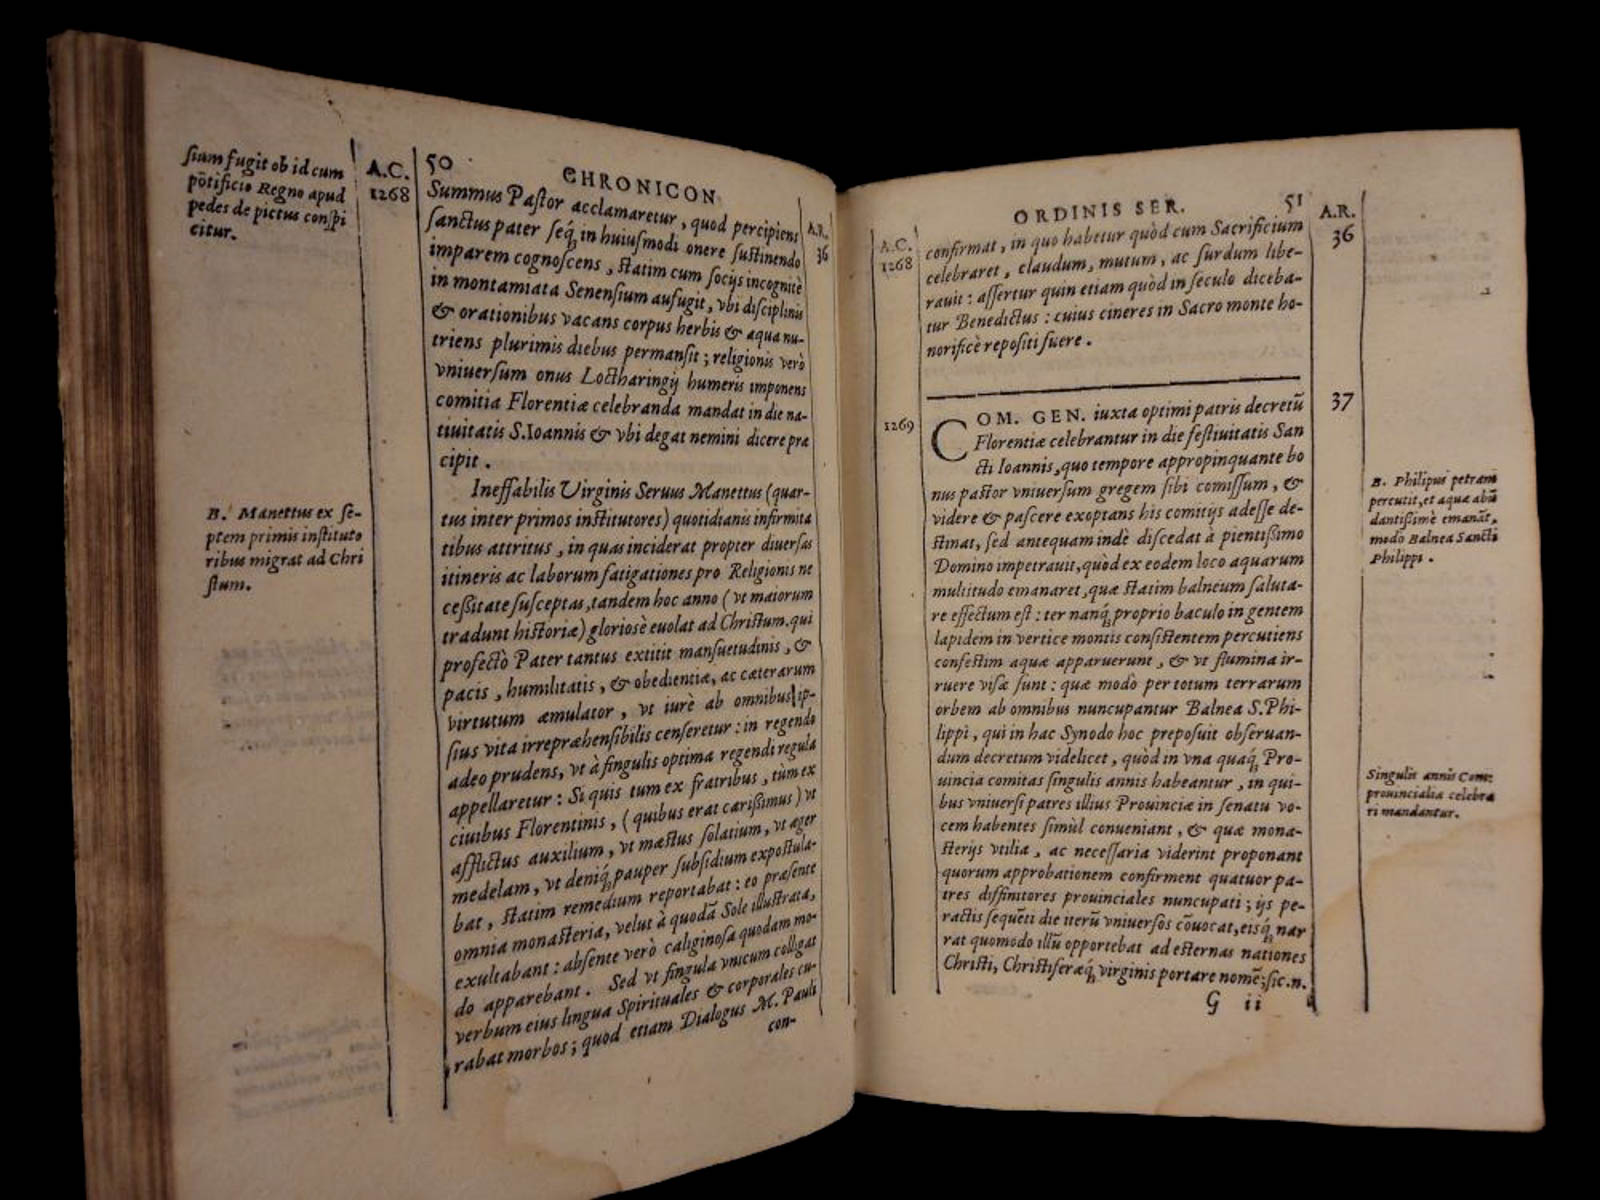 50
CHRONICON
A.C.
1268
A.R.
36
ſium fugit ob id cum
põtificio Regno apud
pedes de pictus conſpi
citur.
Summus Paſtor acclamaretur, quod percipiens
ſanctus pater ſeq́; in huiuſmodi onere ſuſtinendo
imparem cognoſcens, ſtatim cum ſocijs incognitè
in montamiata Senenſium aufugit, vbi diſciplinis
& orationibus vacans corpus herbis & aqua nu-
triens plurimis diebus permanſit; religionis verò
vniuerſum onus Loctharingij humeris imponens
comitia Florentiæ celebranda mandat in die na-
tiuitatis S. Ioannis & vbi degat nemini dicere præ
cipit.
Ineffabilis Virginis Seruus Manettus (quar-
tus inter primos inſtitutores) quotidianis infirmita
tibus attritus, in quas inciderat propter diuerſas
itineris ac laborum fatigationes pro Religionis ne
ceſsitate ſuſceptas, tandem hoc anno (vt maiorum
tradunt hiſtoriæ) glorioſè euolat ad Chriſtum. qui
profectò Pater tantus extitit manſuetudinis, &
pacis, humilitatis, & obedientiæ, ac cæterarum
virtutum æmulator, vt iurè ab omnibus ip-
ſius vita irrepræhenſibilis cenſeretur: in regendo
adeo prudens, vt à ſingulis optima regendi regula
appellaretur: Si quis tum ex fratribus, tùm ex
ciuibus Florentinis, (quibus erat cariſsimus) vt
afflictus auxilium, vt mæſtus ſolatium, vt æger
medelam, vt deniq́; pauper ſubſidium expoſtula-
bat, ſtatim remedium reportabat: eo præſente
omnia monaſteria, velut à quodã Sole illuſtrata,
exultabant: abſente verò caliginoſa quodam mo-
do apparebant. Sed vt ſingula vnicum colligat
verbum eius lingua Spirituales & corporales cu-
rabat morbos; quod etiam Dialogus M. Pauli
con-
B. Manettus ex ſe-
ptem primis inſtituto
ribus migrat ad Chri
ſtum.
ORDINIS SER.
51
A.C.
1268
A.R.
36
confirmat, in quo habetur quòd cum Sacrificium
celebraret, claudum, mutum, ac ſurdum libe-
rauit: aſſertur quin etiam quòd in ſeculo diceba-
tur Benedictus: cuius cineres in Sacro monte ho-
norificè repoſiti fuere.
1269
37
COM. GEN. iuxta optimi patris decretũ
Florentiæ celebrantur in die feſtiuitatis San
cti Ioannis, quo tempore appropinquante bo
nus paſtor vniuerſum gregem ſibi comiſſum, &
videre & paſcere exoptans his comitijs adeſſe de-
ſtinat, ſed antequam indè diſcedat à pientiſsimo
Domino impetrauit, quòd ex eodem loco aquarum
multitudo emanaret, quæ ſtatim balneum ſaluta-
re effectum eſt: ter nanq́; proprio baculo in gentem
lapidem in vertice montis conſiſtentem percutiens
confeſtim aquæ apparuerunt, & vt flumina ir-
ruere viſæ ſunt: quæ modò per totum terrarum
orbem ab omnibus nuncupantur Balnea S. Phi-
lippi, qui in hac Synodo hoc prepoſuit obſeruan-
dum decretum videlicet, quòd in vna quaq́; Pro-
uincia comitas ſingulis annis habeantur, in qui-
bus vniuerſi patres illius Prouinciæ in ſenatu vo-
cem habentes ſimùl conueniant, & quæ mona-
ſterijs vtilia, ac neceſſaria viderint proponant
quorum approbationem confirment quatuor pa-
tres diffinitores prouinciales nuncupati; ijs pe-
ractis ſequẽti die iterũ vniuerſos cõuocat, eisq́; nar
rat quomodo illũ opportebat ad eſternas nationes
Chriſti, Chriſtiferæq́; virginis portare nomẽ; ſic.n.
G ii
B. Philipus petram
percutit, et aquæ abũ
dantiſsimè emanãt,
modo Balnea Sancti
Philippi.
Singulis annis Comi
prouincialia celebra
ri mandantur.